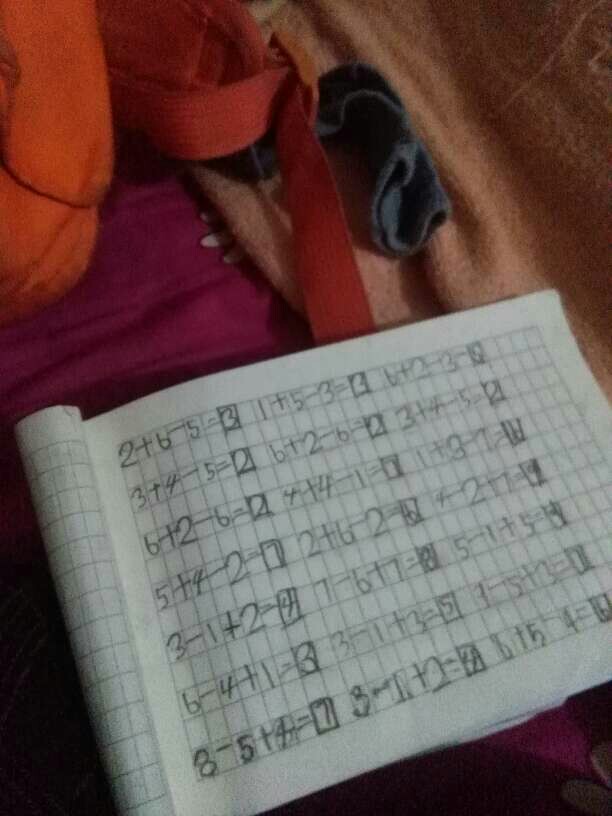 2+6-5=3 1+5-3=3 6+2-3=
3+4-5=2 6+2-6=2 3+4-5=2
6+2-6=2 4+4-1=7
5+4-2=7 2+6-2=6 4-2+7=
3-1+2=4 7-6+7=8 5-1+5=
6-4+1=3 3-1+3=5
8-5+4=7 3-1+2=4